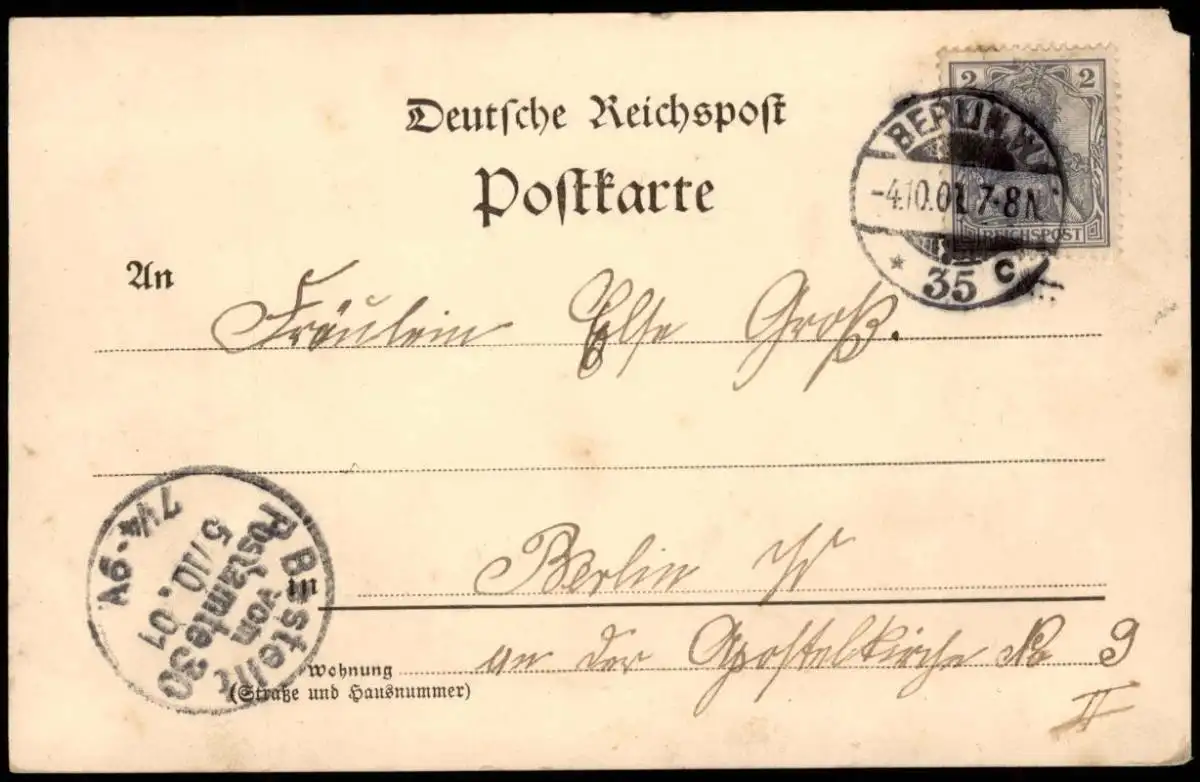 Deutsche Reichspost
Postkarte
2 2
REICHSPOST
BERLIN.W.
-4.10.01.7-8N.
* 35 c
An Fräulein Else Groß.
Bestellt
vom
Postamte 30
5/10.01
7¼-9V.
in Berlin W
Wohnung an der Apostelkirche No 9
(Straße und Hausnummer)
II